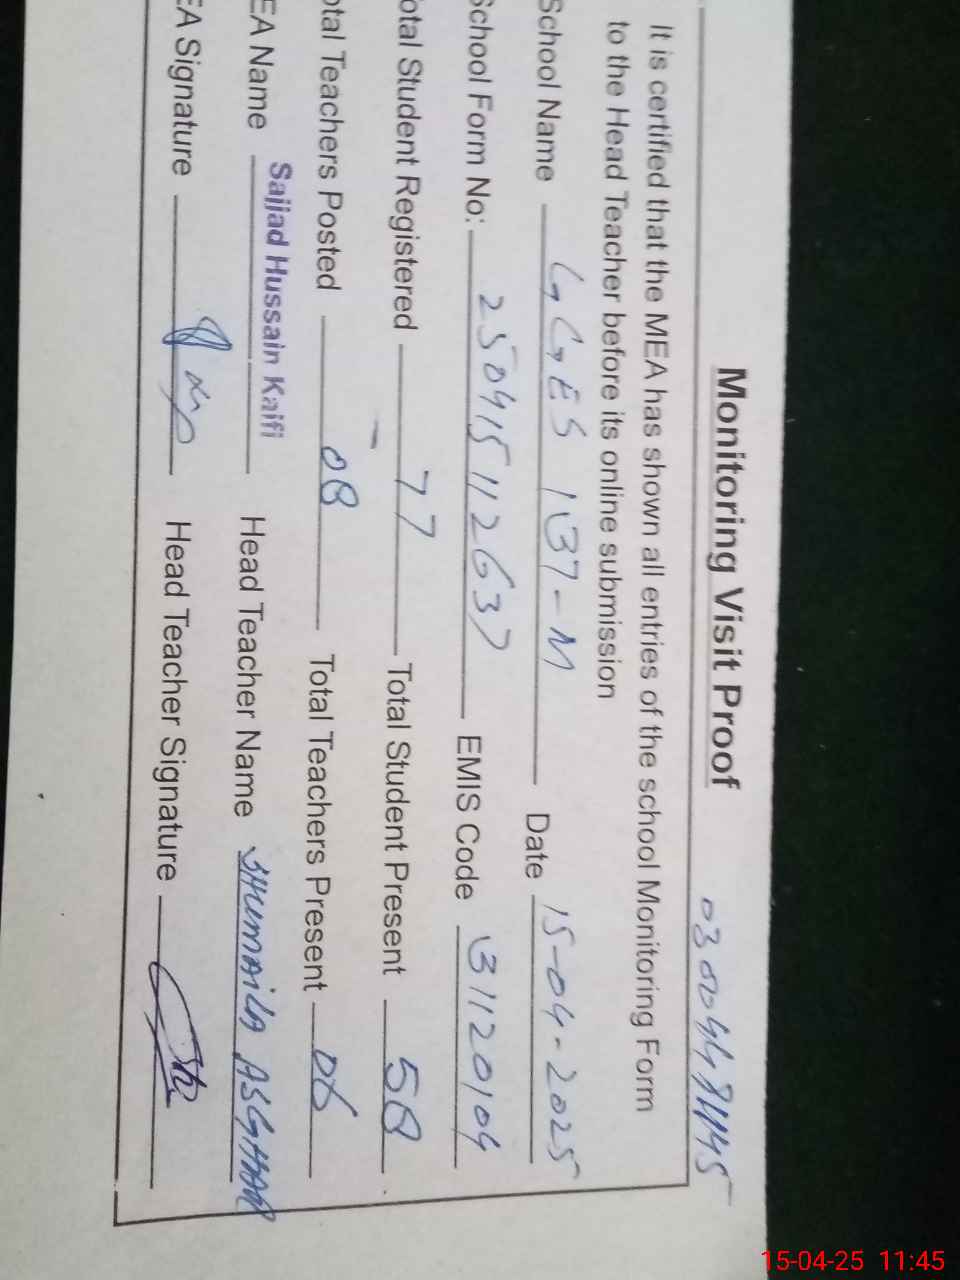 Monitoring Visit Proof
It is certified that the MEA has shown all entries of the school Monitoring Form
to the Head Teacher before its online submission
School Name GGES 137-M Date 15-04-2025
School Form No: 250415112637 EMIS Code 31120104
otal Student Registered 77 Total Student Present 58
otal Teachers Posted 08 Total Teachers Present 08
EA Name Sajjad Hussain Kaifi Head Teacher Name SHUMAILA ASGHAR
EA Signature Head Teacher Signature
15-04-25 11:45